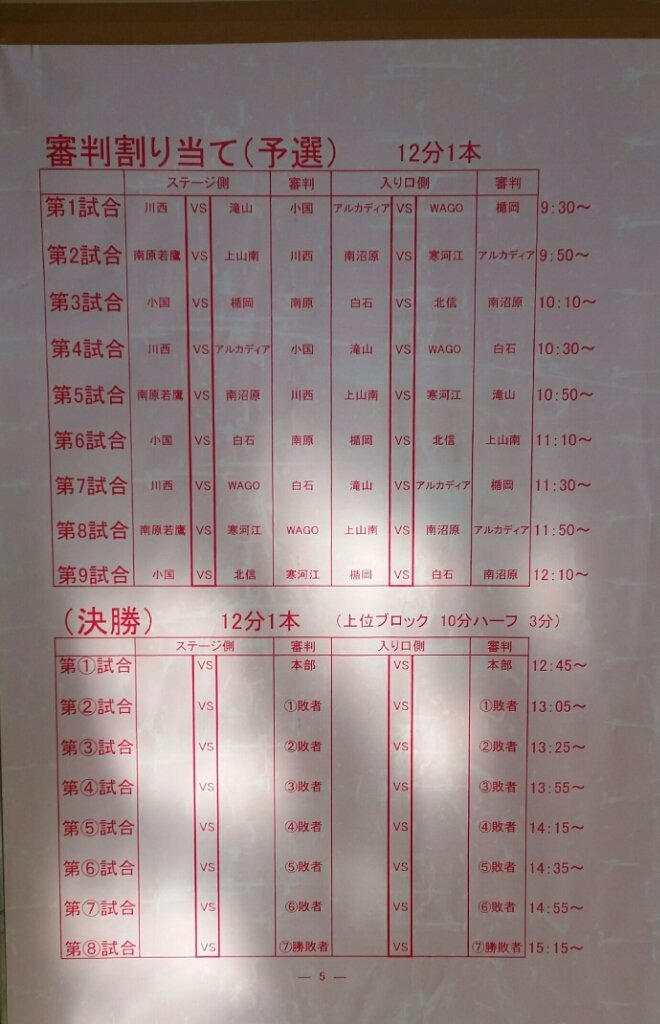 審判割り当て(予選) 12分1本
ステージ側 審判 入り口側 審判
第1試合 川西 VS 滝山 小国 アルカディア VS WAGO 楯岡 9:30~
第2試合 南原若鷹 VS 上山南 川西 南沼原 VS 寒河江 アルカディア 9:50~
第3試合 小国 VS 楯岡 南原 白石 VS 北信 南沼原 10:10~
第4試合 川西 VS アルカディア 小国 滝山 VS WAGO 白石 10:30~
第5試合 南原若鷹 VS 南沼原 川西 上山南 VS 寒河江 滝山 10:50~
第6試合 小国 VS 白石 南原 楯岡 VS 北信 上山南 11:10~
第7試合 川西 VS WAGO 白石 滝山 VS アルカディア 楯岡 11:30~
第8試合 南原若鷹 VS 寒河江 WAGO 上山南 VS 南沼原 アルカディア 11:50~
第9試合 小国 VS 北信 寒河江 楯岡 VS 白石 南沼原 12:10~
(決勝) 12分1本 (上位ブロック 10分ハーフ 3分)
ステージ側 審判 入り口側 審判
第①試合 VS 本部 VS 本部 12:45~
第②試合 VS ①敗者 VS ①敗者 13:05~
第③試合 VS ②敗者 VS ②敗者 13:25~
第④試合 VS ③敗者 VS ③敗者 13:55~
第⑤試合 VS ④敗者 VS ④敗者 14:15~
第⑥試合 VS ⑤敗者 VS ⑤敗者 14:35~
第⑦試合 VS ⑥敗者 VS ⑥敗者 14:55~
第⑧試合 VS ⑦勝敗者 VS ⑦勝敗者 15:15~
— 5 —